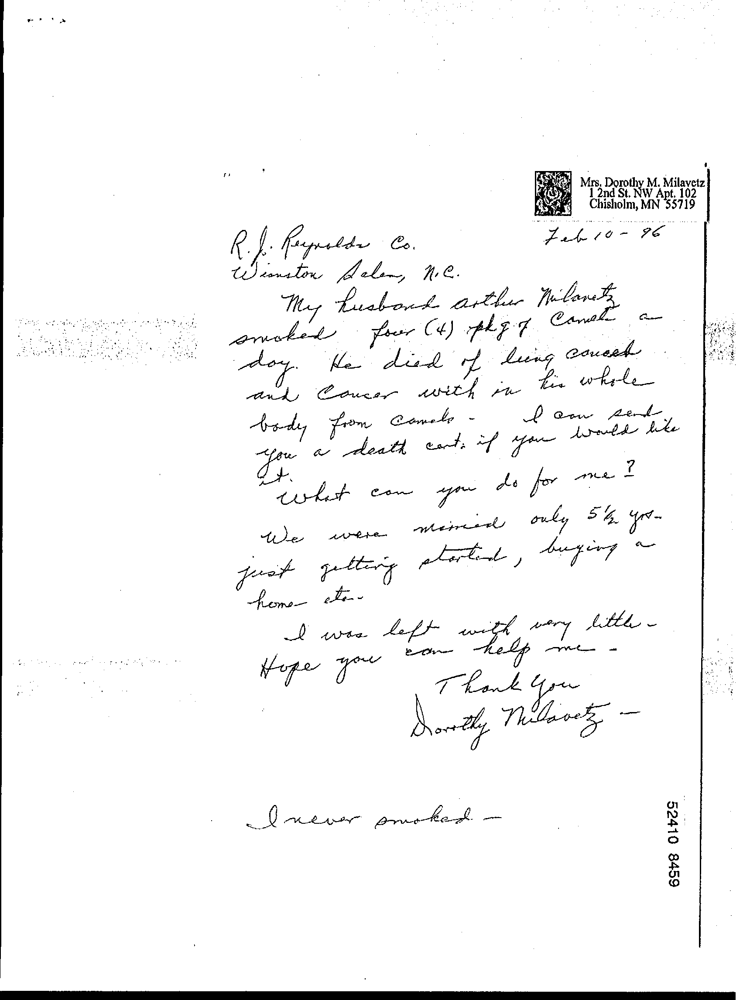 Mrs. Dorothy M. Milavetz
1 2nd St. NW Apt. 102
Chisholm, MN 55719
Feb 10 - 96
R. J. Reynolds Co.
Winston Salem, N.C.
My husband Arthur Milavetz
smoked four (4) pkg of Camels a
day. He died of lung cancer
and cancer with in his whole
body from Camels - I can send
you a death cert. if you would like
it.
What can you do for me?
We were married only 5 1/2 yrs-
just getting started, buying a
home etc-
I was left with very little-
Hope you can help me-
Thank You
Dorothy Milavetz -
I never smoked -
52410 8459